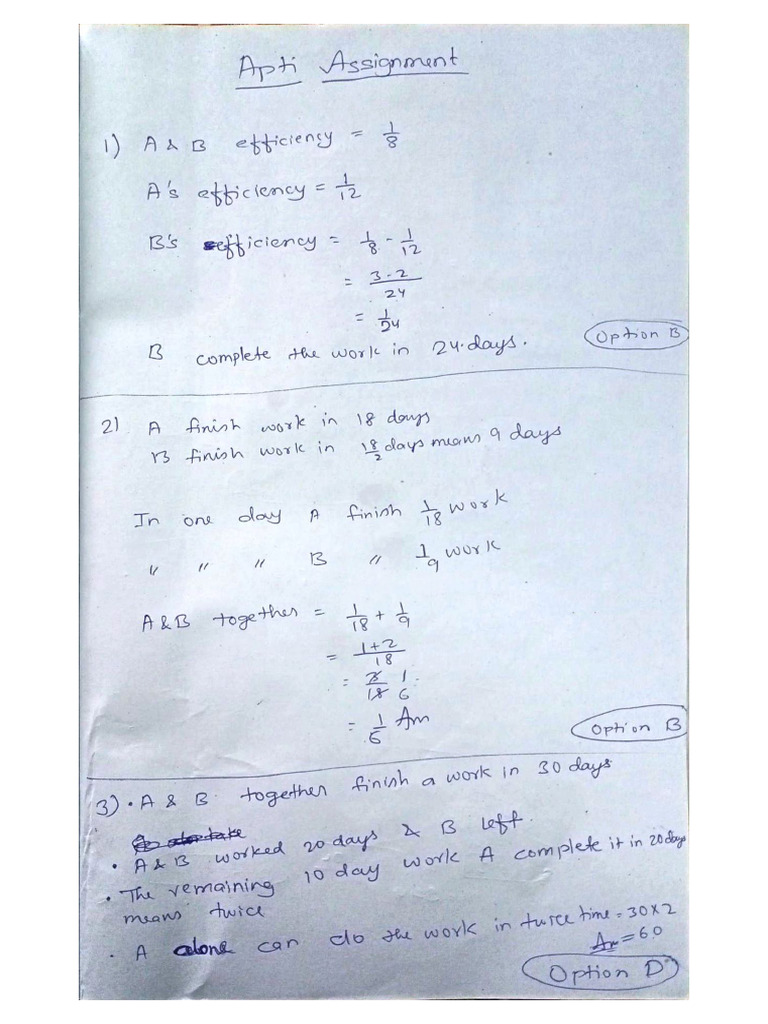 Apti Assignment
1) A & B efficiency = 1/8
A's efficiency = 1/12
B's efficiency = 1/8 - 1/12
= 3-2/24
= 1/24
B complete the work in 24 days.
Option B
2) A finish work in 18 days
B finish work in 18/2 days means 9 days
In one day A finish 1/18 work
" " " B " 1/9 work
A & B together = 1/18 + 1/9
= 1+2/18
= 3/18 1/6
= 1/6 Ans
Option B
3) • A & B together finish a work in 30 days
• A & B worked 20 days & B left.
• The remaining 10 day work A complete it in 20 days
means twice
• A alone can do the work in twice time = 30 x 2
Ans = 60
Option D